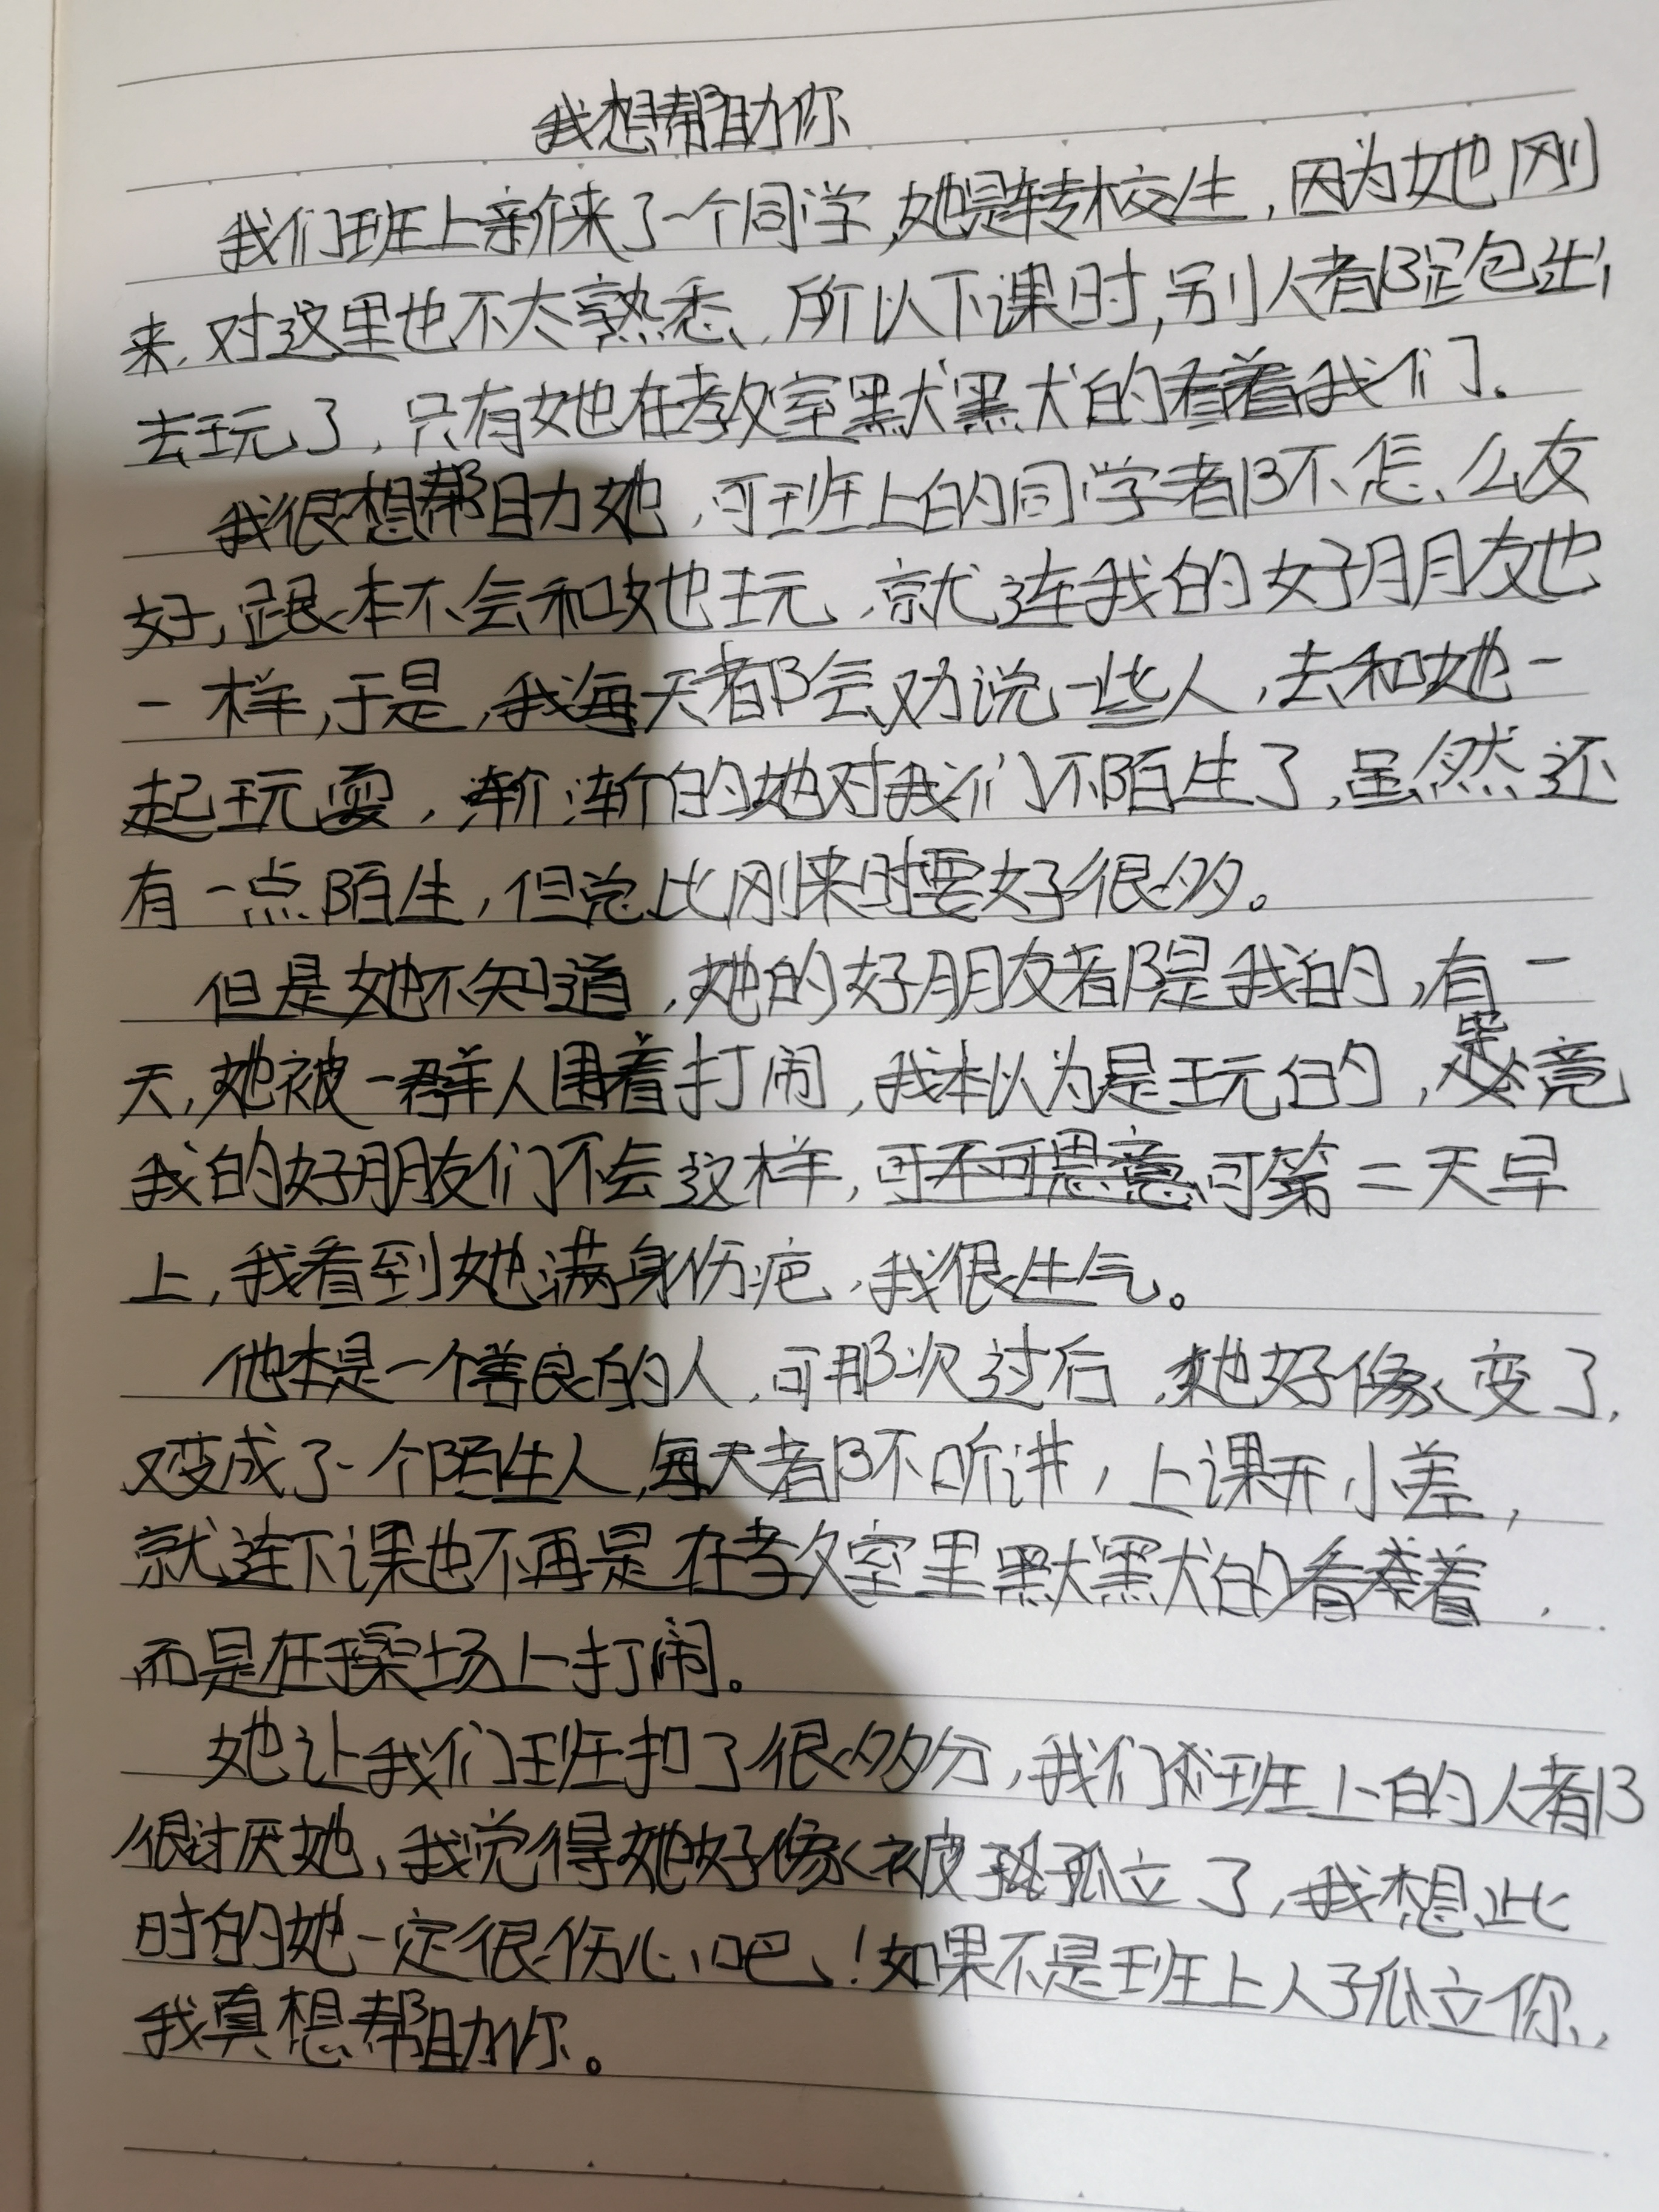 我想帮助你
我们班上新来了一个同学,她是转校生,因为她刚
来,对这里也不太熟悉,所以下课时,别人都跑出
去玩了,只有她在教室默默的看着我们。
我很想帮助她,可班上的同学都不怎么友
好,跟本不会和她玩,就连我的好朋友也
一样,于是,我每天都会劝说一些人,去和她一
起玩耍,渐渐的她对我们不陌生了,虽然还
有一点陌生,但总比刚来时要好很多。
但是她不知道,她的好朋友都是我的,有一
天,她被一群人围着打闹,我本以为是玩的,毕竟
我的好朋友们不会这样,可第二天早
上,我看到她满身伤疤,我很生气。
他本是一个善良的人,可那次过后,她好像变了,
又变成了一个陌生人,每天都不听讲,上课开小差,
就连下课也不再是在教室里默默的看着,
而是在操场上打闹。
她让我们班扣了很多分,我们班上的人都
很讨厌她,我觉得她好像被孤立了,我想此
时的她一定很伤心吧!如果不是班上人孤立你,
我真想帮助你。